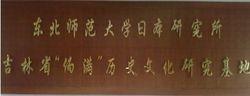 东北师范大学日本研究所
吉林省“伪满”历史文化研究基地